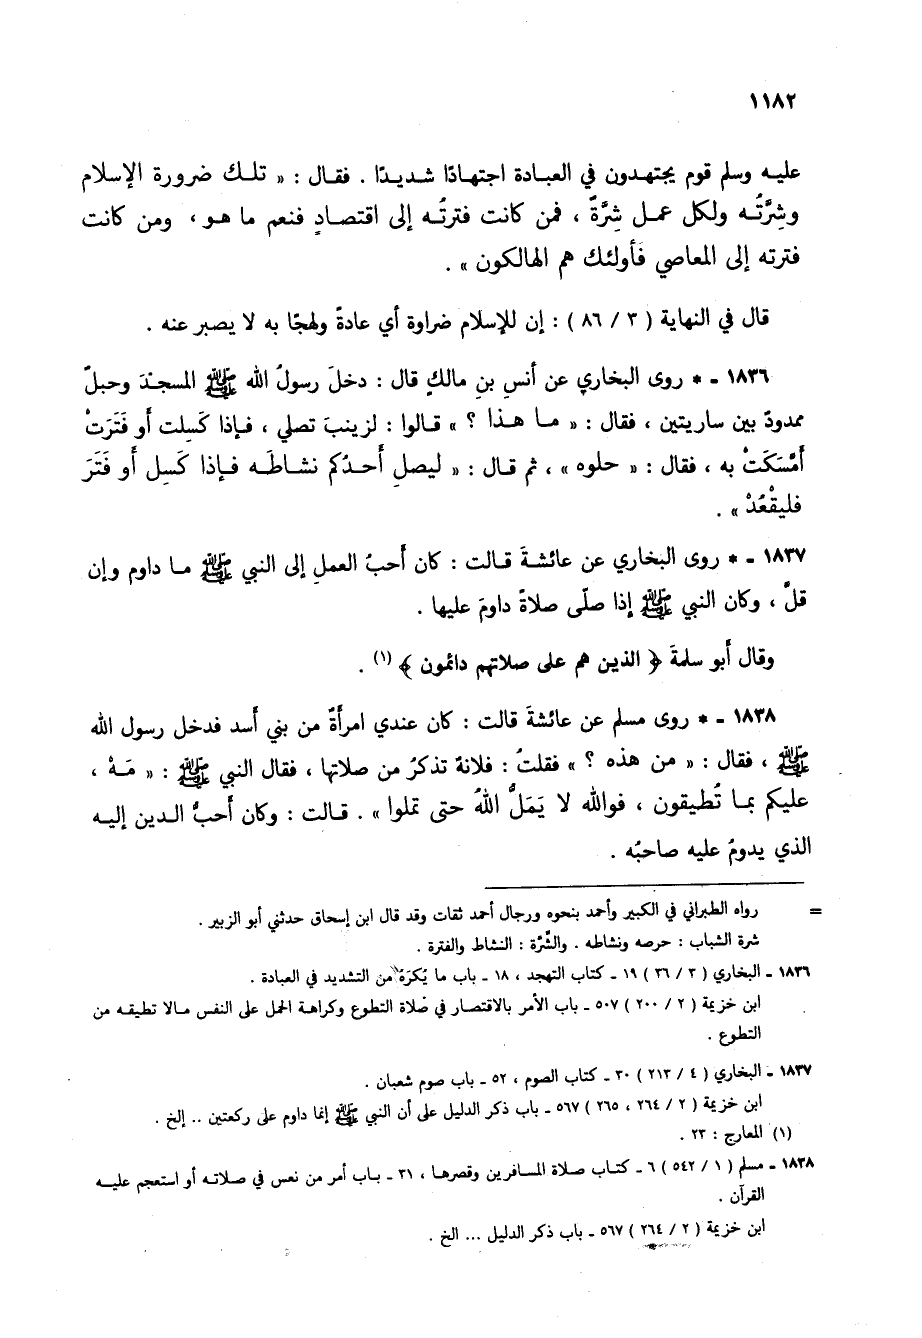 ١١٨٢
عليه وسلم قوم يجتهدون في العبادة اجتهادًا شديدًا . فقال : « تلك ضرورة الإسلام
وشِرَّتُه ولكل عمل شِرَّةٌ ، فمن كانت فترتُه إلى اقتصادٍ فنعم ما هو ، ومن كانت
فترته إلى المعاصي فأولئك هم الهالكون » .
قال في النهاية ( ٣ / ٨٦ ) : إن للإسلام ضراوة أي عادةً ولهجًا به لا يصبر عنه .
١٨٣٦ ـ * روى البخاري عن أنسِ بنِ مالكٍ قال : دخلَ رسولُ الله ﷺ المسجدَ وحبلٌ
ممدودٌ بين ساريتين ، فقال : « ما هذا ؟ » قالوا : لزينبَ تصلي ، فإذا كَسِلت أو فَتَرَتْ
أمْسَكَتْ به ، فقال : « حلوه » ، ثم قال : « ليصلِ أحدُكم نشاطَه فإذا كَسِل أو فَتَرَ
فليقْعُدْ » .
١٨٣٧ ـ * روى البخاري عن عائشةَ قالت : كان أحبُّ العملِ إلى النبي ﷺ ما داوم وإن
قلَّ ، وكان النبي ﷺ إذا صلّى صلاةً داومَ عليها .
وقال أبو سلمةَ ﴿ الذين هم على صلاتهم دائمون ﴾ (١) .
١٨٣٨ ـ * روى مسلم عن عائشةَ قالت : كان عندي امرأةٌ من بني أسد فدخل رسول الله
ﷺ ، فقال : « من هذه ؟ » فقلتُ : فلانةُ تذكرُ من صلاتها ، فقال النبي ﷺ : « مَهْ ،
عليكم بما تُطيقون ، فوالله لا يَمَلُّ اللهُ حتى تملوا » . قالت : وكان أحبُّ الدين إليه
الذي يدومُ عليه صاحبُه .
= رواه الطبراني في الكبير وأحمد بنحوه ورجال أحمد ثقات وقد قال ابن إسحاق حدثني أبو الزبير .
شرة الشباب : حرصه ونشاطه . والشِّرَّة : النشاط والفترة .
١٨٣٦ ـ البخاري ( ٣ / ٣٦ ) ١٩ ـ كتاب التهجد ، ١٨ ـ باب ما يُكرَهُ من التشديد في العبادة .
ابن خزيمة ( ٢ / ٢٠٠ ) ٥٠٧ ـ باب الأمر بالاقتصار في صلاة التطوع وكراهة الحمل على النفس مالا تطيقه من
التطوع .
١٨٣٧ ـ البخاري ( ٤ / ٢١٣ ) ٣٠ ـ كتاب الصوم ، ٥٢ ـ باب صوم شعبان .
ابن خزيمة ( ٢ / ٢٦٤ ، ٢٦٥ ) ٥٦٧ ـ باب ذكر الدليل على أن النبي ﷺ إنما داوم على ركعتين .. إلخ .
(١) المعارج : ٢٣ .
١٨٣٨ ـ مسلم ( ١ / ٥٤٢ ) ٦ ـ كتاب صلاة المسافرين وقصرها ، ٣١ ـ باب أمر من نعس في صلاته أو استعجم عليه
القرآن .
ابن خزيمة ( ٢ / ٢٦٤ ) ٥٦٧ ـ باب ذكر الدليل ... الخ .